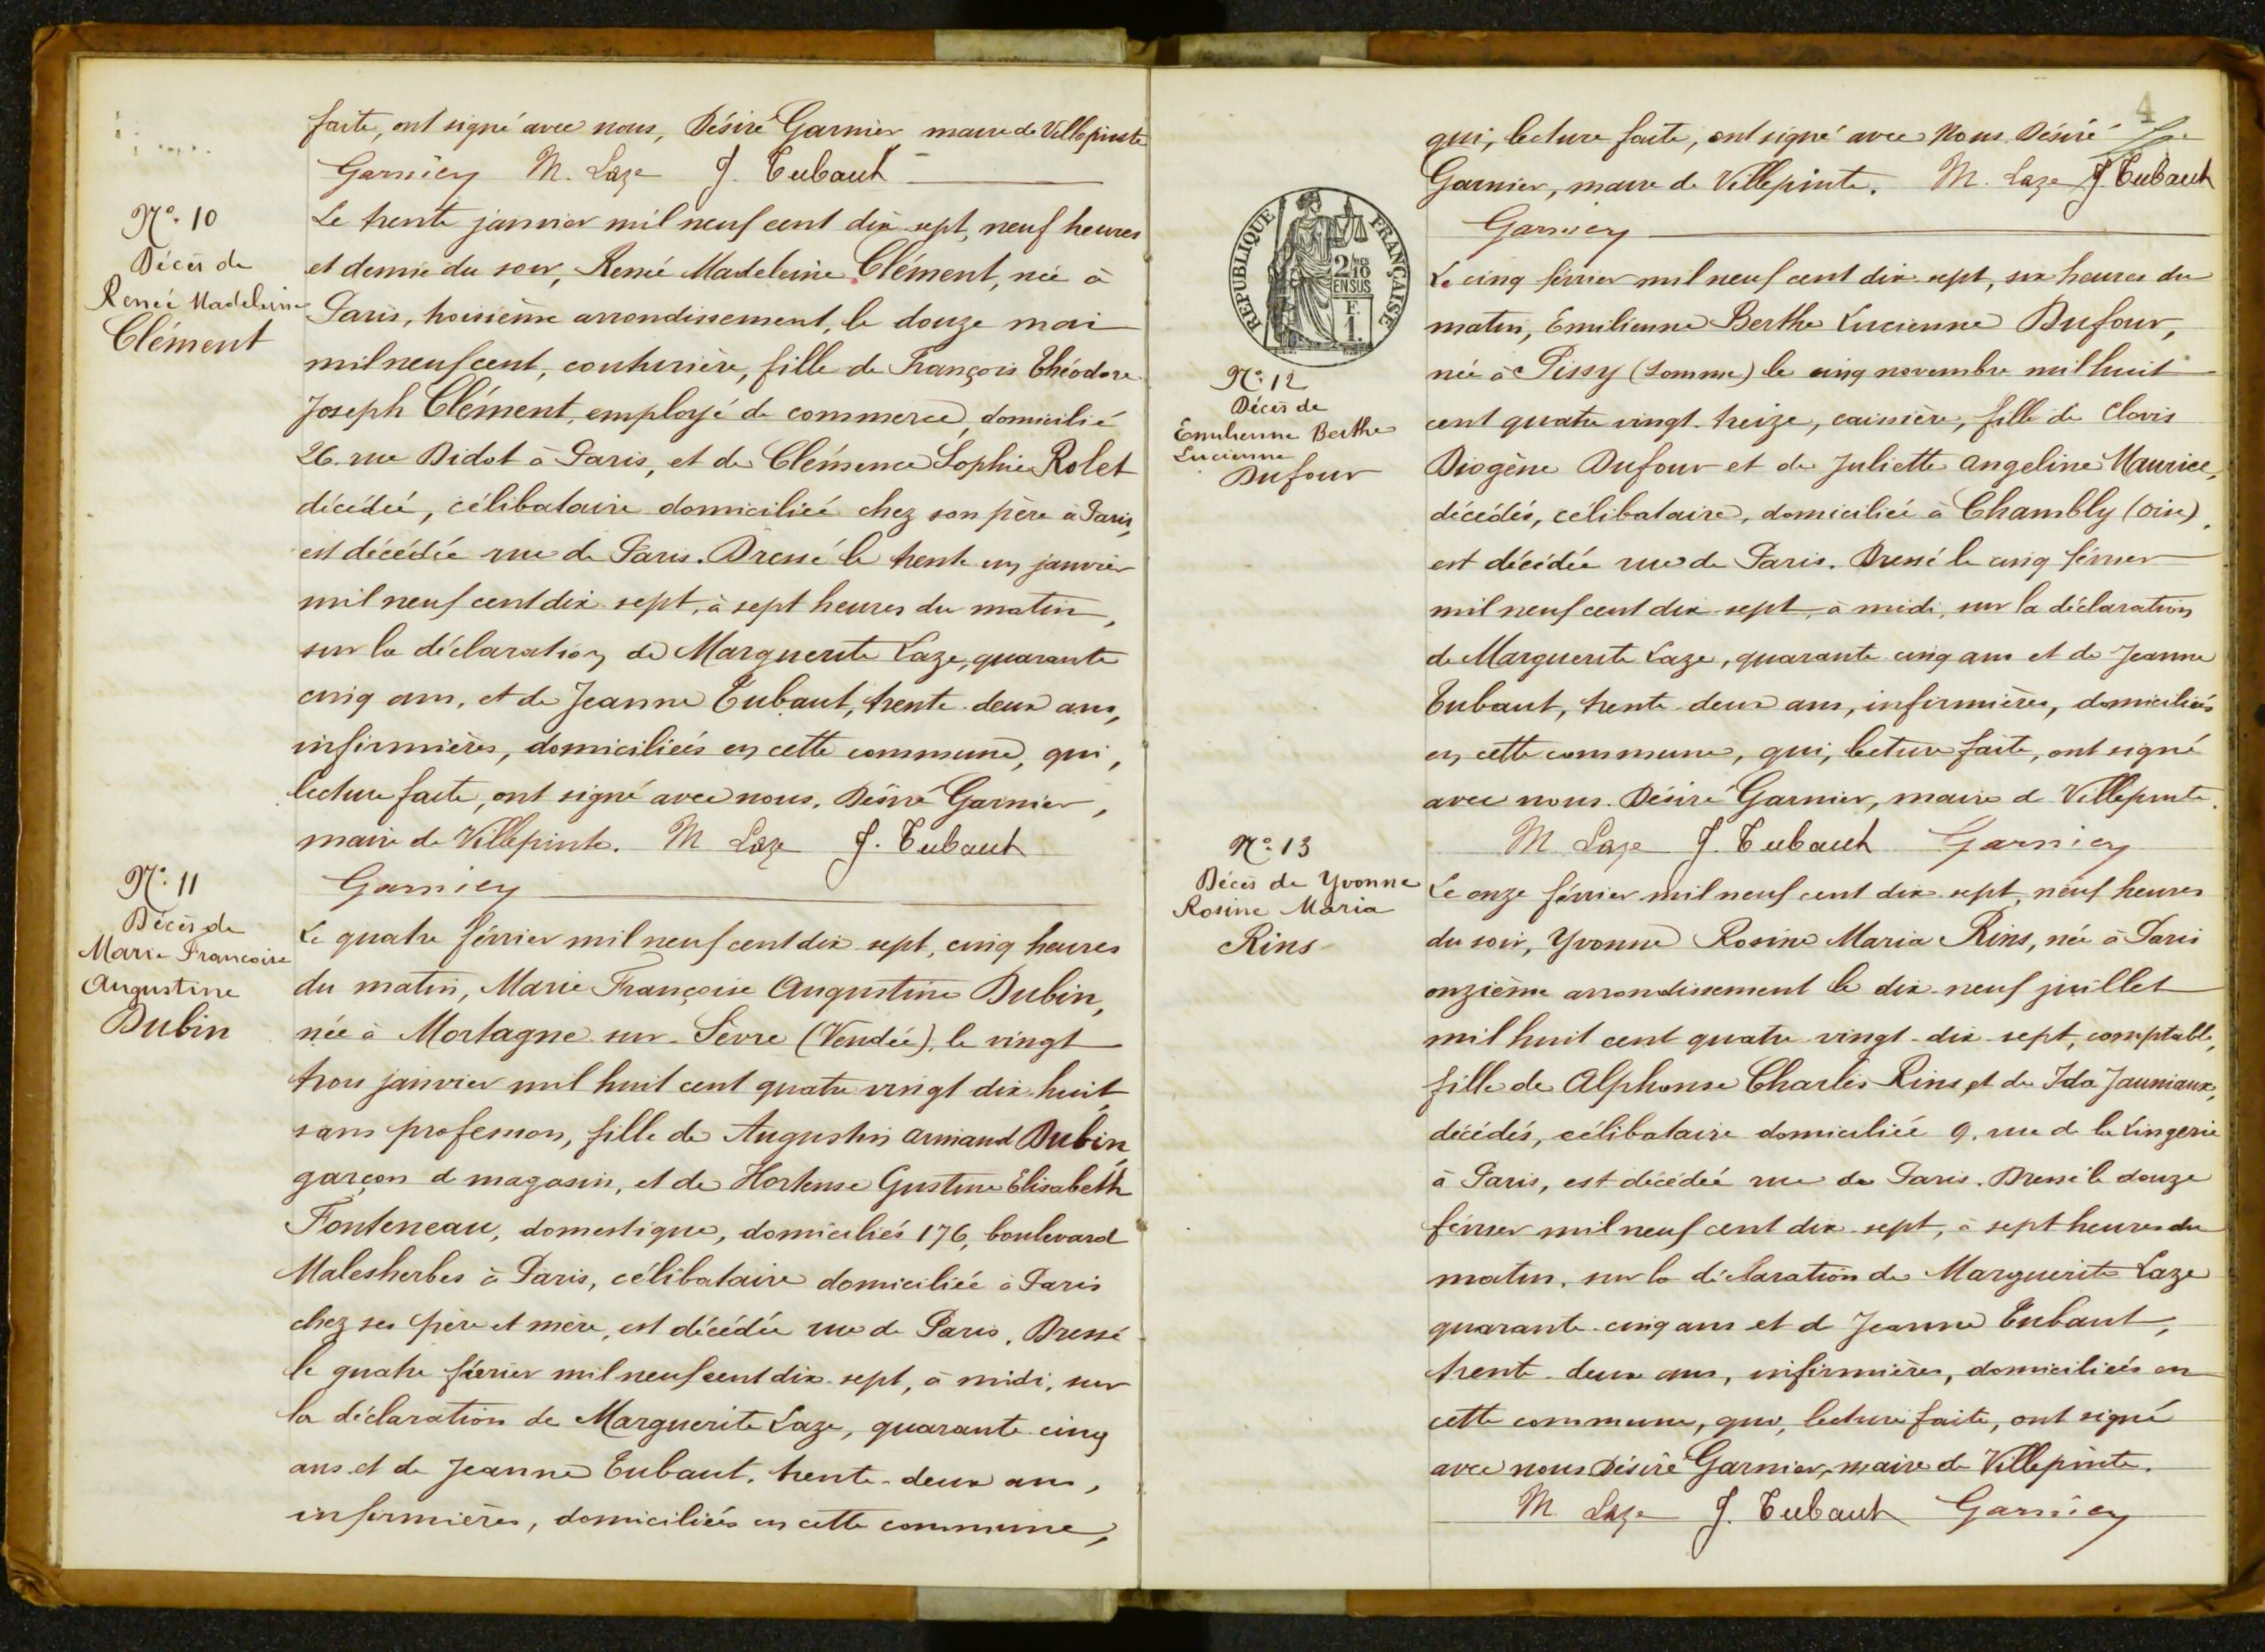 faite, ont signé avec nous, Désiré Garnier maire de Villepinte
Garnier M. Laze J. Tubaut
N° 10
Décès de
Renée Madeleine
Clément
Le trente janvier mil neuf cent dix sept, neuf heures
et demie du soir, Renée Madeleine Clément, née à
Paris, troisième arrondissement, le douze mai
mil neuf cent, couturière, fille de François Théodore
Joseph Clément, employé de commerce, domicilié
26 rue Didot à Paris, et de Clémence Sophie Rolet
décédée, célibataire domiciliée chez son père à Paris,
est décédée rue de Paris. Dressé le trente un janvier
mil neuf cent dix sept, à sept heures du matin,
sur la déclaration de Marguerite Laze, quarante
cinq ans, et de Jeanne Tubaut, trente deux ans,
infirmières, domiciliées en cette commune, qui,
lecture faite, ont signé avec nous, Désiré Garnier,
maire de Villepinte. M Laze J. Tubaut
Garnier
N° 11
Décès de
Marie Françoise
Augustine
Dubin
Le quatre février mil neuf cent dix sept, cinq heures
du matin, Marie Françoise Augustine Dubin,
née à Mortagne sur Sèvre (Vendée), le vingt
trois janvier mil huit cent quatre vingt dix huit,
sans profession, fille de Augustin Armand Dubin,
garçon de magasin, et de Hortense Gustine Elisabeth
Fonteneau, domestique, domiciliés 176, boulevard
Malesherbes à Paris, célibataire domiciliée à Paris
chez ses père et mère, est décédée rue de Paris. Dressé
le quatre février mil neuf cent dix sept, à midi, sur
la déclaration de Marguerite Laze, quarante cinq
ans et de Jeanne Tubaut, trente-deux ans,
infirmières, domiciliées en cette commune,
4
qui, lecture faite, ont signé avec Nous Désiré
Garnier, maire de Villepinte. M. Laze J. Tubaut
Garnier
REPUBLIQUE FRANÇAISE
2/10
EN SUS
F.
1.
N° 12
Décès de
Emilienne Berthe
Lucienne
Dufour
Le cinq février mil neuf cent dix sept, six heures du
matin, Emilienne Berthe Lucienne Dufour,
née à Pissy (Somme) le cinq novembre mil huit
cent quatre vingt treize, caissière, fille de Clovis
Diogène Dufour et de Juliette Angeline Maurice,
décédés, célibataire, domiciliée à Chambly (Oise),
est décédée rue de Paris. Dressé le cinq février
mil neuf cent dix sept, à midi, sur la déclaration
de Marguerite Laze, quarante cinq ans et de Jeanne
Tubaut, trente deux ans, infirmières, domiciliées
en cette commune, qui, lecture faite, ont signé
avec nous Désiré Garnier, maire de Villepinte.
M Laze J. Tubaut Garnier
N° 13
Décès de Yvonne
Rosine Maria
Rins
Le onze février mil neuf cent dix sept, neuf heures
du soir, Yvonne Rosine Maria Rins, née à Paris
onzième arrondissement le dix-neuf juillet
mil huit cent quatre vingt-dix sept, comptable,
fille de Alphonse Charles Rins, et de Ida Jauniaux,
décédés, célibataire domiciliée 9, rue de la Lingerie
à Paris, est décédée rue de Paris. Dressé le douze
février mil neuf cent dix sept, à sept heures du
matin, sur la déclaration de Marguerite Laze
quarante-cinq ans et de Jeanne Tubaut,
trente-deux ans, infirmières, domiciliées en
cette commune, qui, lecture faite, ont signé
avec nous Désiré Garnier, maire de Villepinte.
M. Laze J. Tubaut Garnier